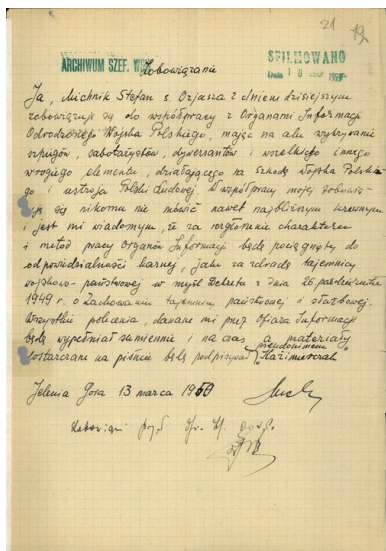 21
19
ARCHIWUM SZEF. WSW
SFILMOWANO
10 1999
Zobowiązanie
Ja, Michnik Stefan s. Ozjasza z dniem dzisiejszym
zobowiązuję się do współpracy z Organami Informacji
Odrodzonego Wojska Polskiego, mając na celu wykrywanie
szpiegów, sabotażystów, dywersantów i wszelkiego innego
wrogiego elementu, działającego na szkodę Wojska Polskie-
go i ustroju Polski Ludowej. O współpracy mojej zobowią-
zuję się nikomu nie mówić nawet najbliższym krewnym
i jest mi wiadomym, że za rozgłoszenie charakteru
i metod pracy Organów Informacji będę pociągnięty do
odpowiedzialności karnej, jako za zdradę tajemnicy
wojskowo-państwowej w myśl Dekretu z dnia 26 października
1949 r. o Zachowaniu tajemnicy państwowej i służbowej.
Wszystkie polecenia, dawane mi przez Oficera Informacji
będę wypełniał sumiennie i na czas, a materiały
dostarczane na piśmie będę podpisywał pseudonimem
"Kazimierczak"
Jelenia Góra 13 marca 1950